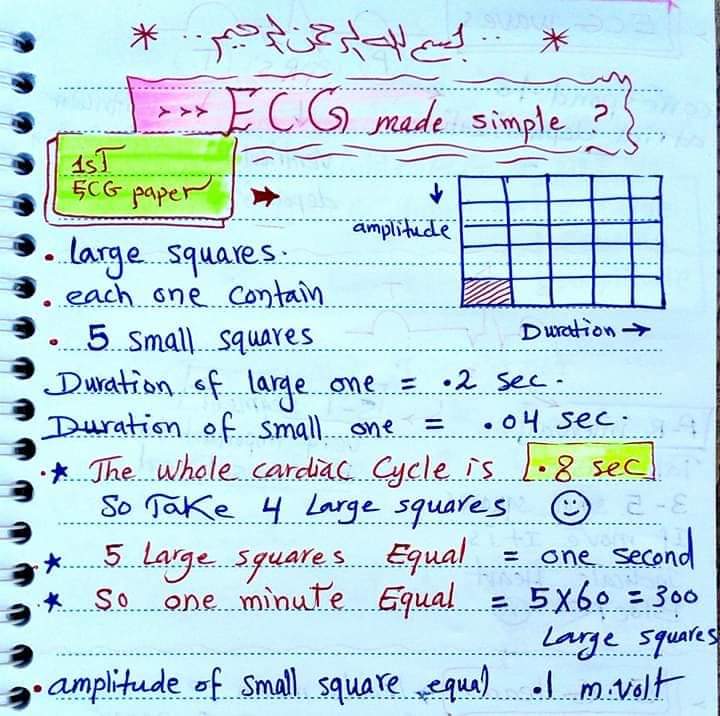 * .. بسم الله الرحمن الرحيم .. *
>>> ECG made simple ?
1sT
ECG paper
amplitude
Duration →
• large squares.
• each one contain
• 5 small squares
Duration of large one = .2 sec.
Duration of small one = .04 sec.
.★ The whole cardiac Cycle is .8 sec
So Take 4 Large squares ☺
.★ 5 Large squares Equal = one second
★ So one minute Equal = 5x60 = 300
Large squares
• amplitude of small square equal .1 m.volt